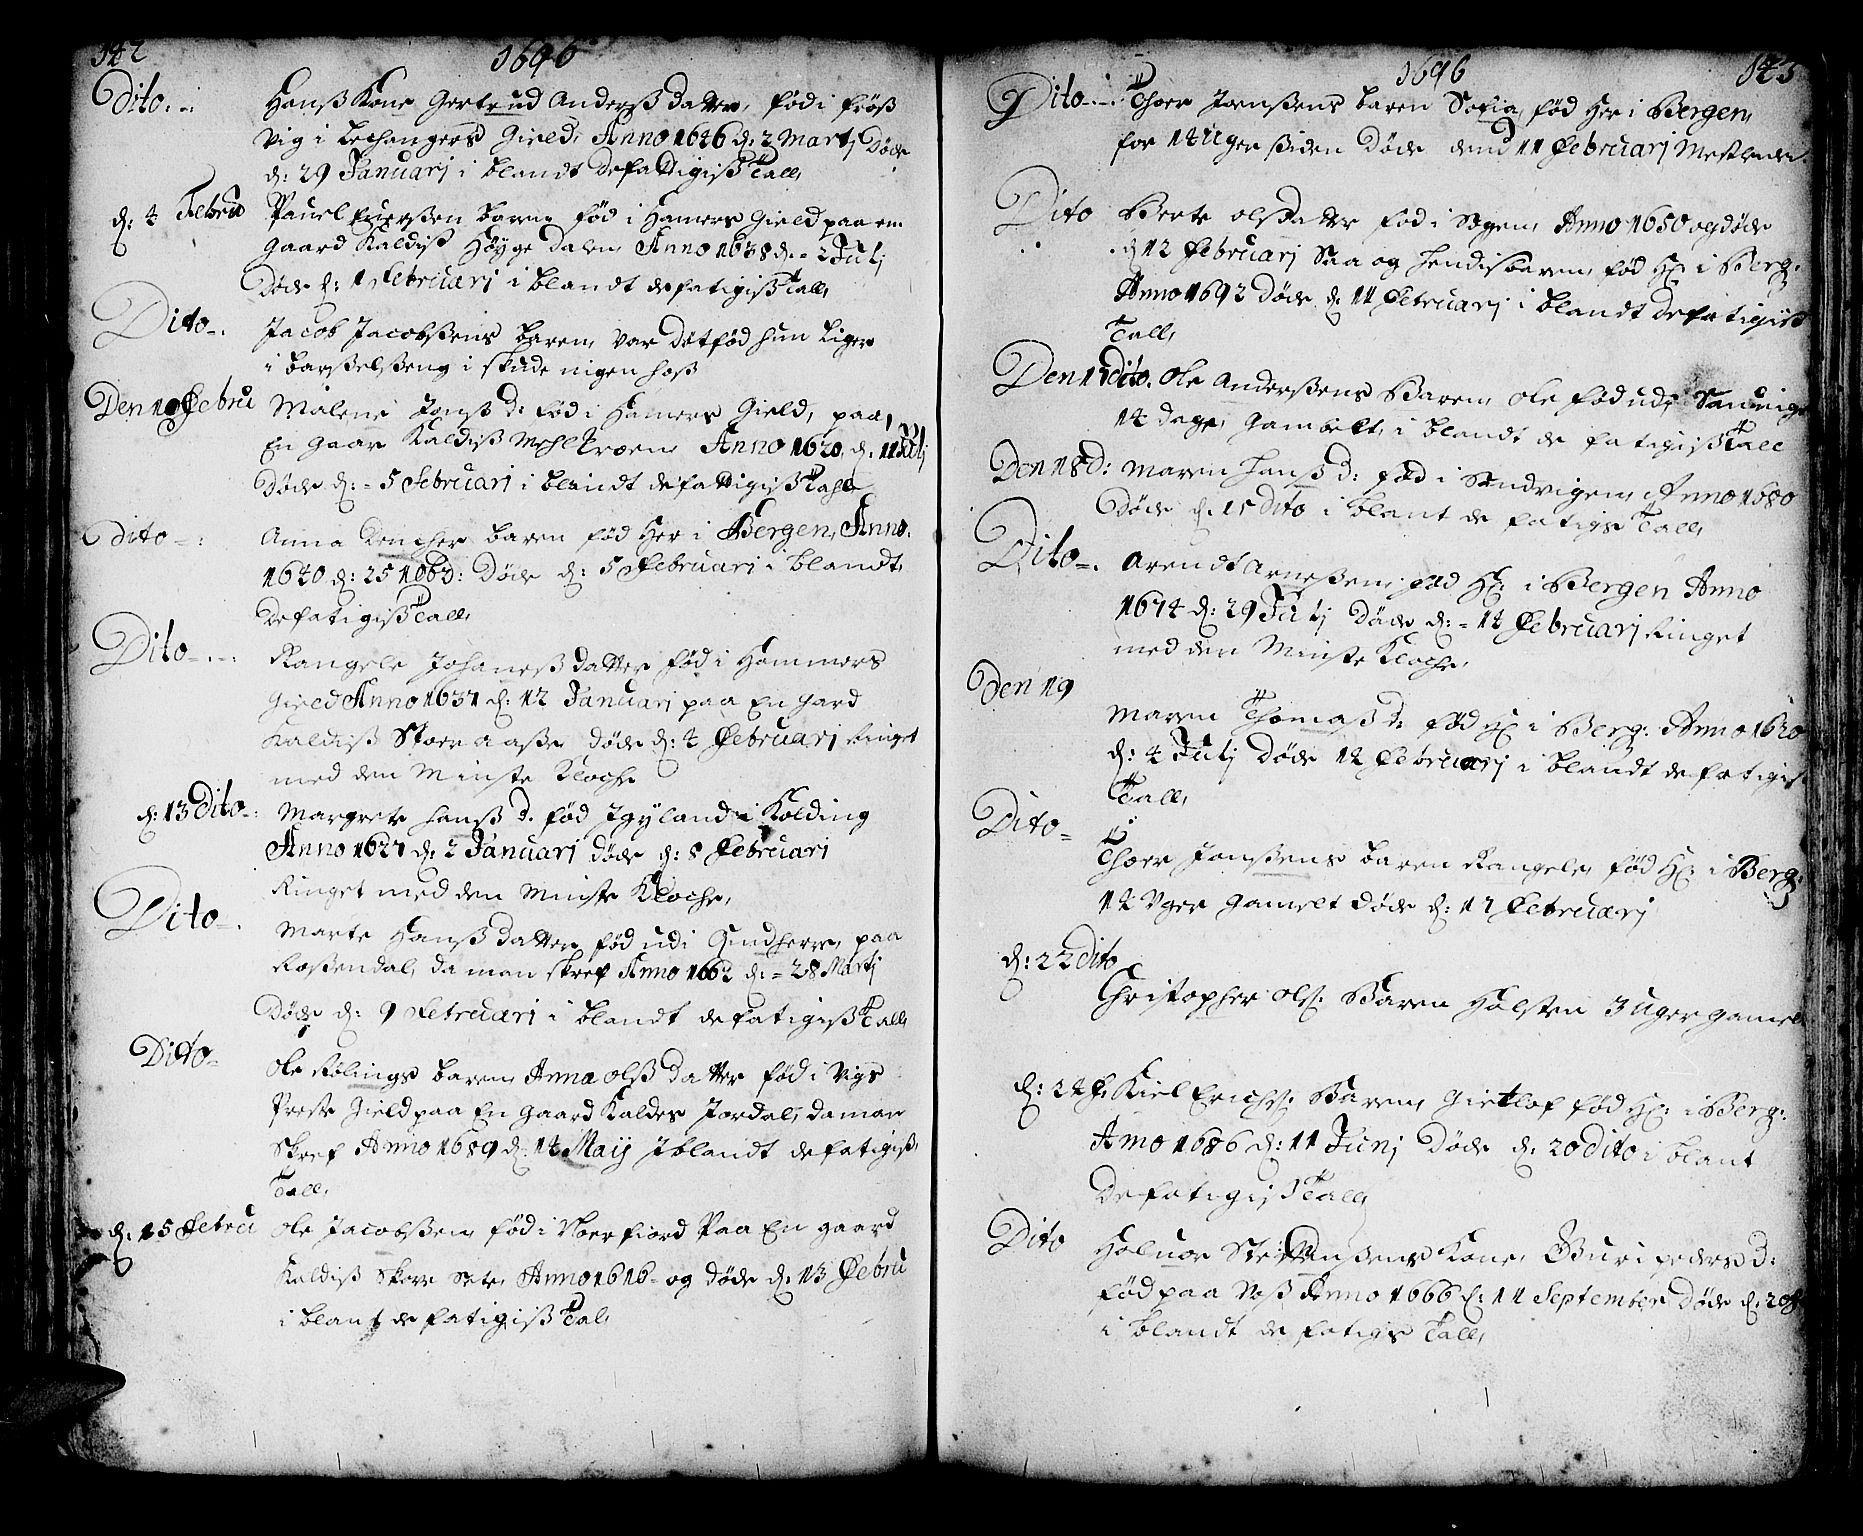 142 1696
Dito Hanß Kone Gertrud Anderß datter, fød i frøß
Vig i Lechangers Gield, Anno 1626 d: 2 Martj Døde
d: 29 Januarj i blandt De fattigiß Tall,
d: 4 Febru Pauel Euerßen baren fød i Hamers Gield paa en
gaard Kaldiß Høyge dalen Anno 1638 d: 2 Julj
Døde d: 1 Februarj i blandt de fatigiß Tall,
Dito Jacob Jacobßens baren, var døt fød hun liger
i barßelßeng i skude nigen hoß
Den 10 Febru Malene Jonß D: fød i Hamers Gield, paa,
En gaar Kaldiß Mehltroen Anno 1620, d: 11 Julj
Døde d: 5 Februarj i blandt de fattigiß Tahl
Dito Anna Dencher baren fød Her i Bergen, Anno.
1640 d: 25 10bd: Døde d: 5 Februarj i blandt,
De fatigiß Tall,
Dito Rangele Johaneß datter fød i Hommers
Gield Anno 1637 d: 12 Januarj paa En gard
Kaldiß Stoer aaße døde d: 4 Februarj Ringet
med den Minste Kloche
d: 13 Dito Margrete Hanß D. fød Jgyland i Kolding
Anno 1627 d: 2 Januarj døde d: 8 Februarj
Ringet med den Minste Kloche,
Dito Marte Hanß datter, fød udi Quindherre, paa
Roßendal, da man skref Anno 1662 d: 28 Martj
Døde d: 9 Februarj i blandt de fatigiß Tall,
Dito Ole Rølings baren Anna olß datter fød i Vigs
Preste Gield paa En gaard Kaldes Jordal, da man
Skref Anno 1689 d: 14 Maij iblandt de fatigiß,
Tall,
d: 15 Febru Ole Jacobßen, fød i Noerfiord Paa En gaard
Kaldiß Skore Sete, Anno 1616 og døde d: 13 Febru
i blant de fatigiß Tal,
1696 143
Dito Thoer Jonßens baren Sofia, fød Her i Bergen,
for 14 Uger ßiden Døde dend 11 Februarj
Dito Berte olsdatter fød i Sogen, Anno 1650 og døde
d 12 Februarj Saa og hendis baren, fød H: i Berg:
Anno 1692 Døde d: 11 Februarj i blandt De fatigiß
Tall,
Den 17 dito. Ole Anderßens Baren Ole fød udj Sanuigen
14 dage, gambelt, i blandt de fatigiß Tall
Den 18 d: Maren Hanß D: fød i Sandvigen, Anno 1680
Døde d. 15 Dito i blant de fatigs Tall,
Dito Arendt Arneßen, fød H: i Bergen Anno
1674 d: 29 Julj Døde d: 14 Februarj Ringet
med den Minste Kloche,
Den 19
Maren Thomaß d: fød H: i Berg: Anno 1620
d: 4 Julj Døde 12 Februarj i blandt de fatigis
Tall,
Dito
Thoer Jonßens baren Rangele, fød H: i Berg:
12 Uger gamelt døde d: 17 Februarj
d: 22 Dito
Christopher Ols: Baren Holsten 3 uger gamel
d: 24 f: Kiel Erichs: Baren, Gietlof fød H: i Berg:
Anno 1686 d: 11 Junj Døde d: 20 Dito i blant
De fatigis Tall,
Dito Holuor Steffenßens Kone, Guri peders D:
fød paa Voß Anno 1666 d: 14 September Døde d: 20
i blandt de fatigs Tall,